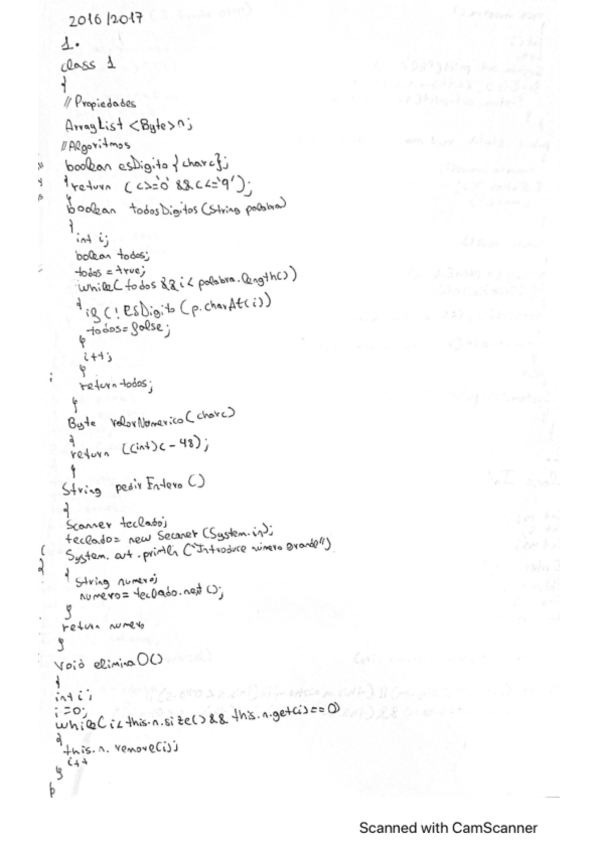 2016/2017
1.
class 1
{
// Propiedades
ArrayList <Byte> n;
// Algoritmos
boolean esDigito {charc};
{ return (c>='0' && c<='9');
}
boolean todosDigitos (String palabra)
{
int i;
bolean todos;
todos = true;
while( todos && i < palabra.length())
{ if (! esDigito (p.charAt(i))
todos= false;
}
i++;
}
return todos;
}
Byte valorNumerico( charc)
{
return ((int)c - 48);
}
String pedirEntero ()
{
Scanner teclado;
teclado= new Secaner (System.in);
System. out .println ("Introduce número grande")
{ String numero;
numero= teclado.next ();
}
return numero
}
void elimina0()
{
int i;
i=0;
while( i< this.n.size() && this.n.get(i)==0)
{
this.n. remove(i);
i++
}
}
Scanned with CamScanner